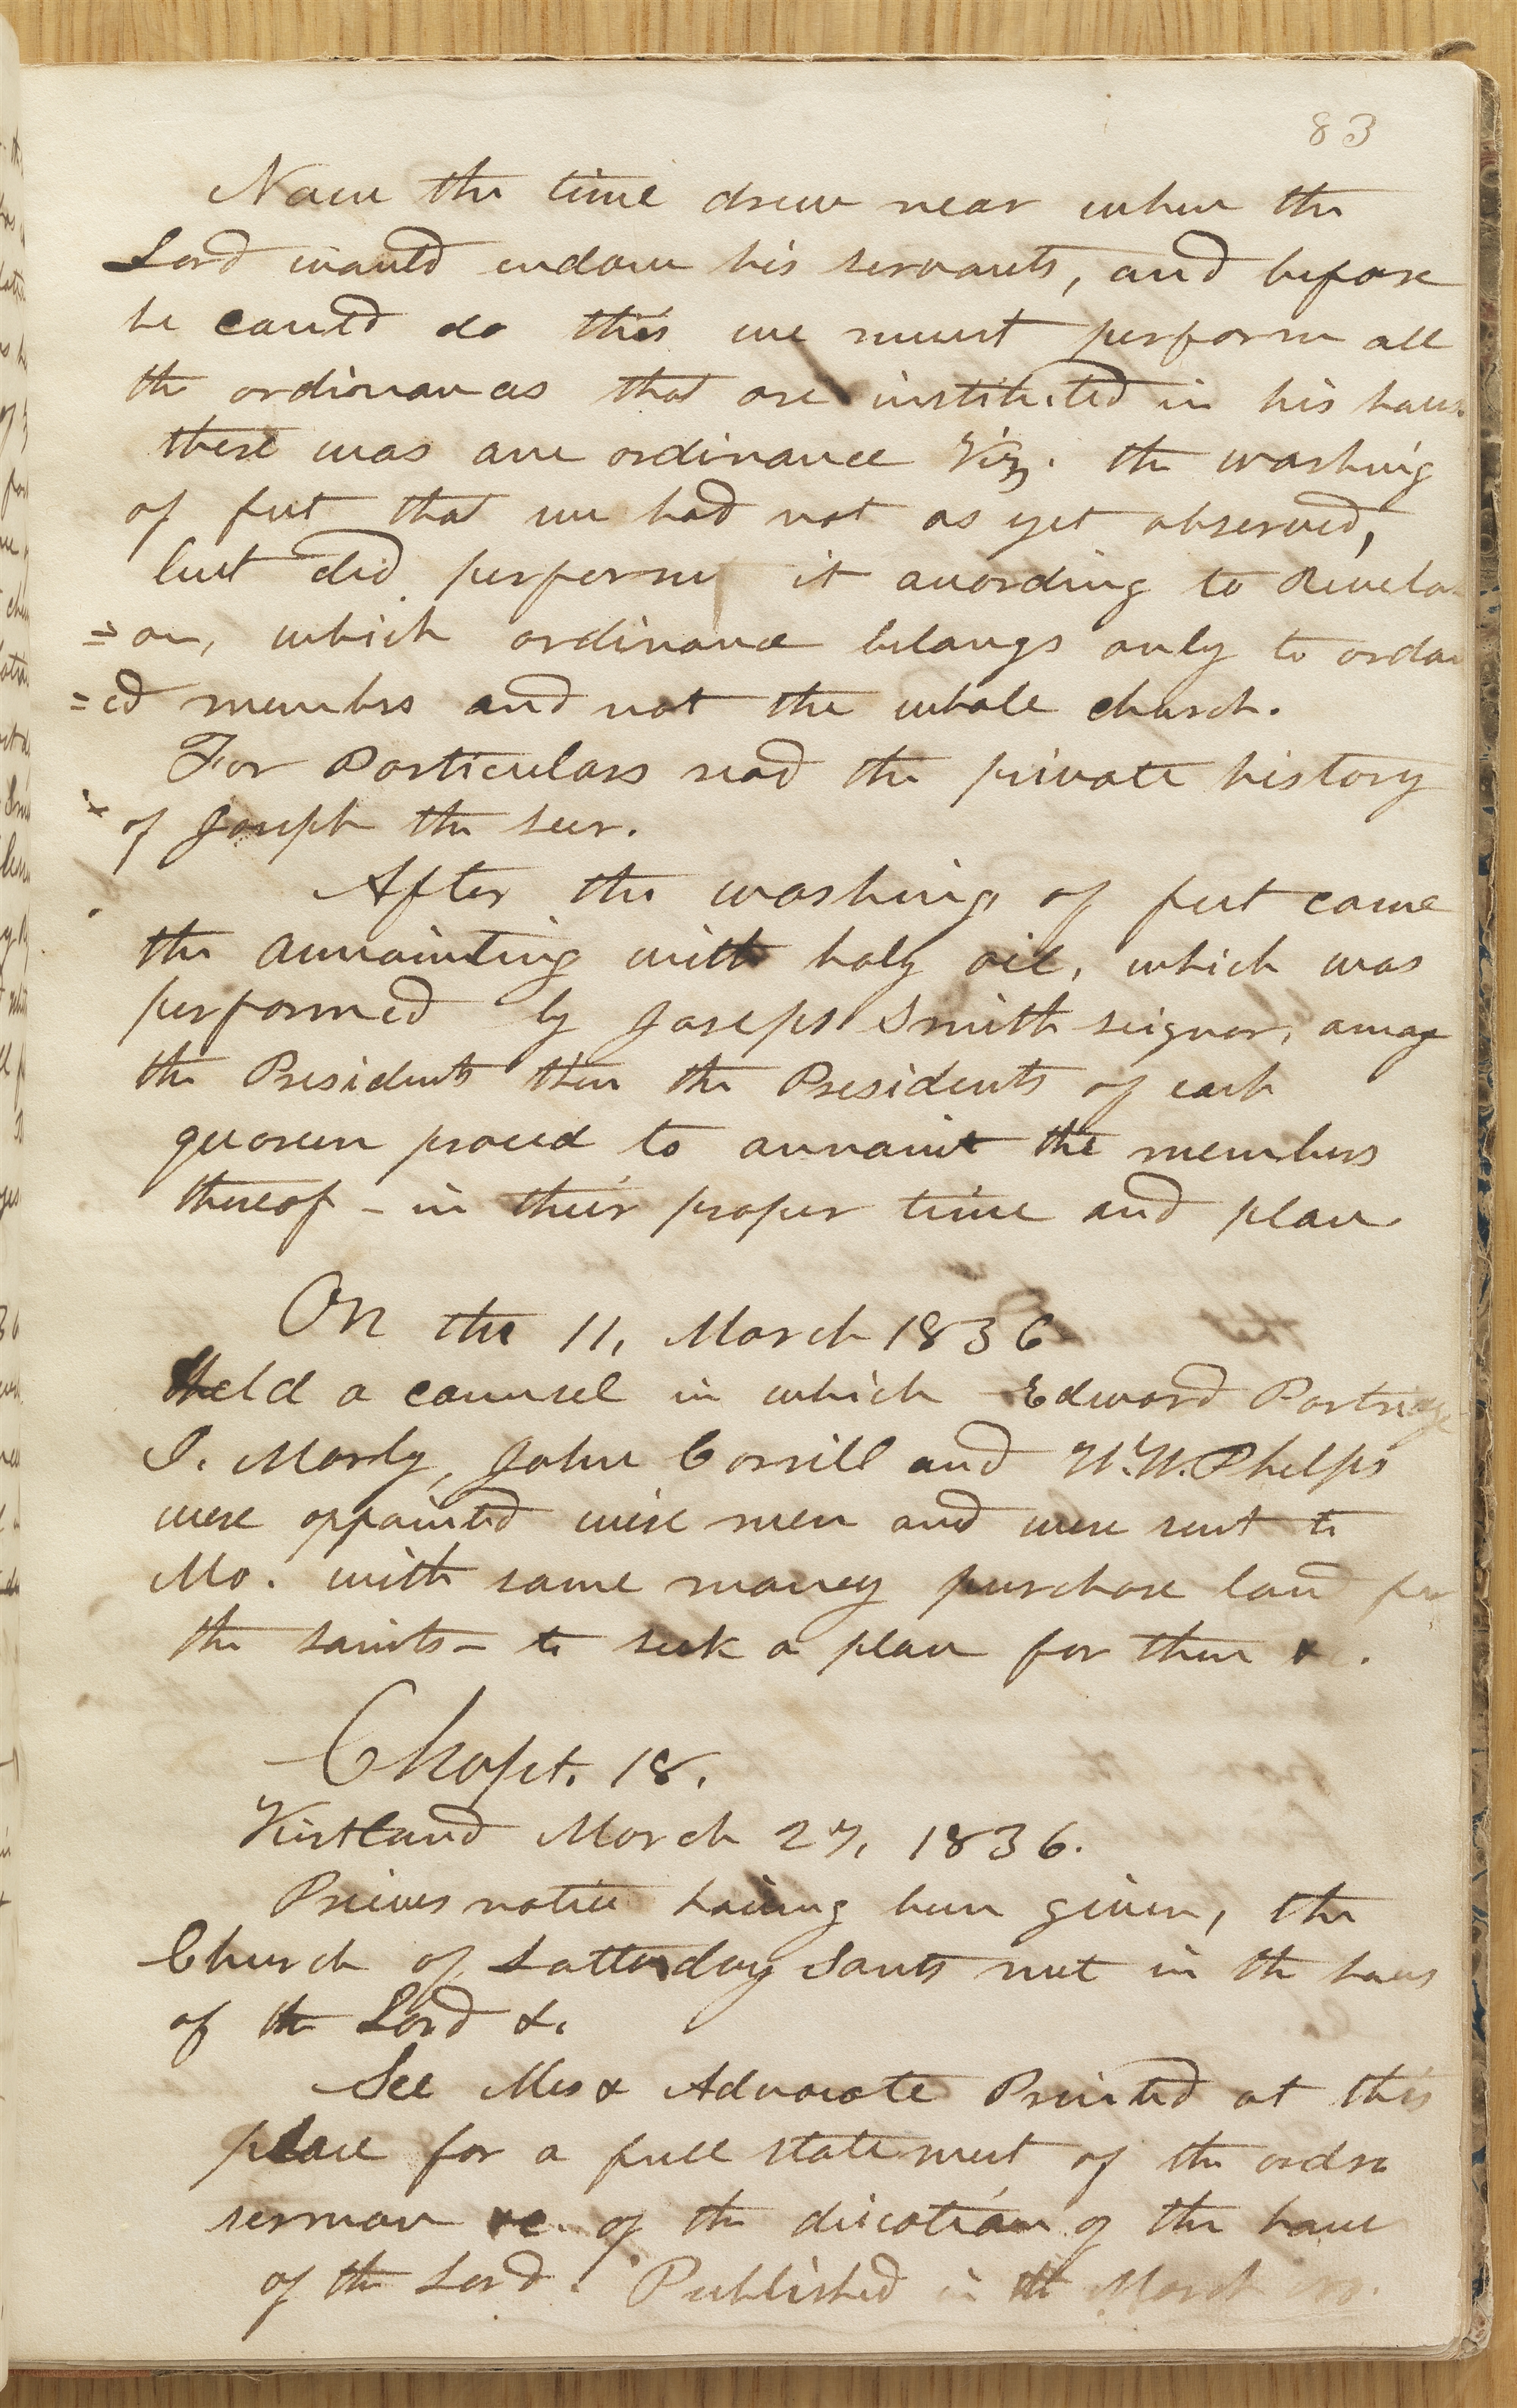 83
Now the time drew near when the
Lord would endow his servants, and before
he could do this we must perform all
the ordinances that are instituted in his hous
there was one ordinance Viz. the washing
of feet that we had not as yet observed,
but did perform it acording to Revela
=on, which ordinance belongs only to ordai
=ed members and not the whole church.
For Particulars read the private history
of Joseph the seer.
After the washing of feet came
the annointing with holy oil, which was
performed by Joseph Smith seignor, among
the Presidents then the Presidents of each
quorum proceed to annoint the members
thereof - in their proper time and place
On the 11, March 1836
Held a counsel in which Edward Partridge
I. Morly, John Corrill and W. W. Phelps
were appointed wise men and were sent to
Mo. with some money purchase land for
the saints - to seek a place for them &c.
Chapt. 18.
Kirtland March 27, 1836.
Prievos notice haiving been given, the
Church of Latterday Sants met in the hous
of the Lord &.
See Mes & Advocate Printed at this
place for a full statement of the order
sermon &c. of the dication of the house
of the Lord. Published in the March no.